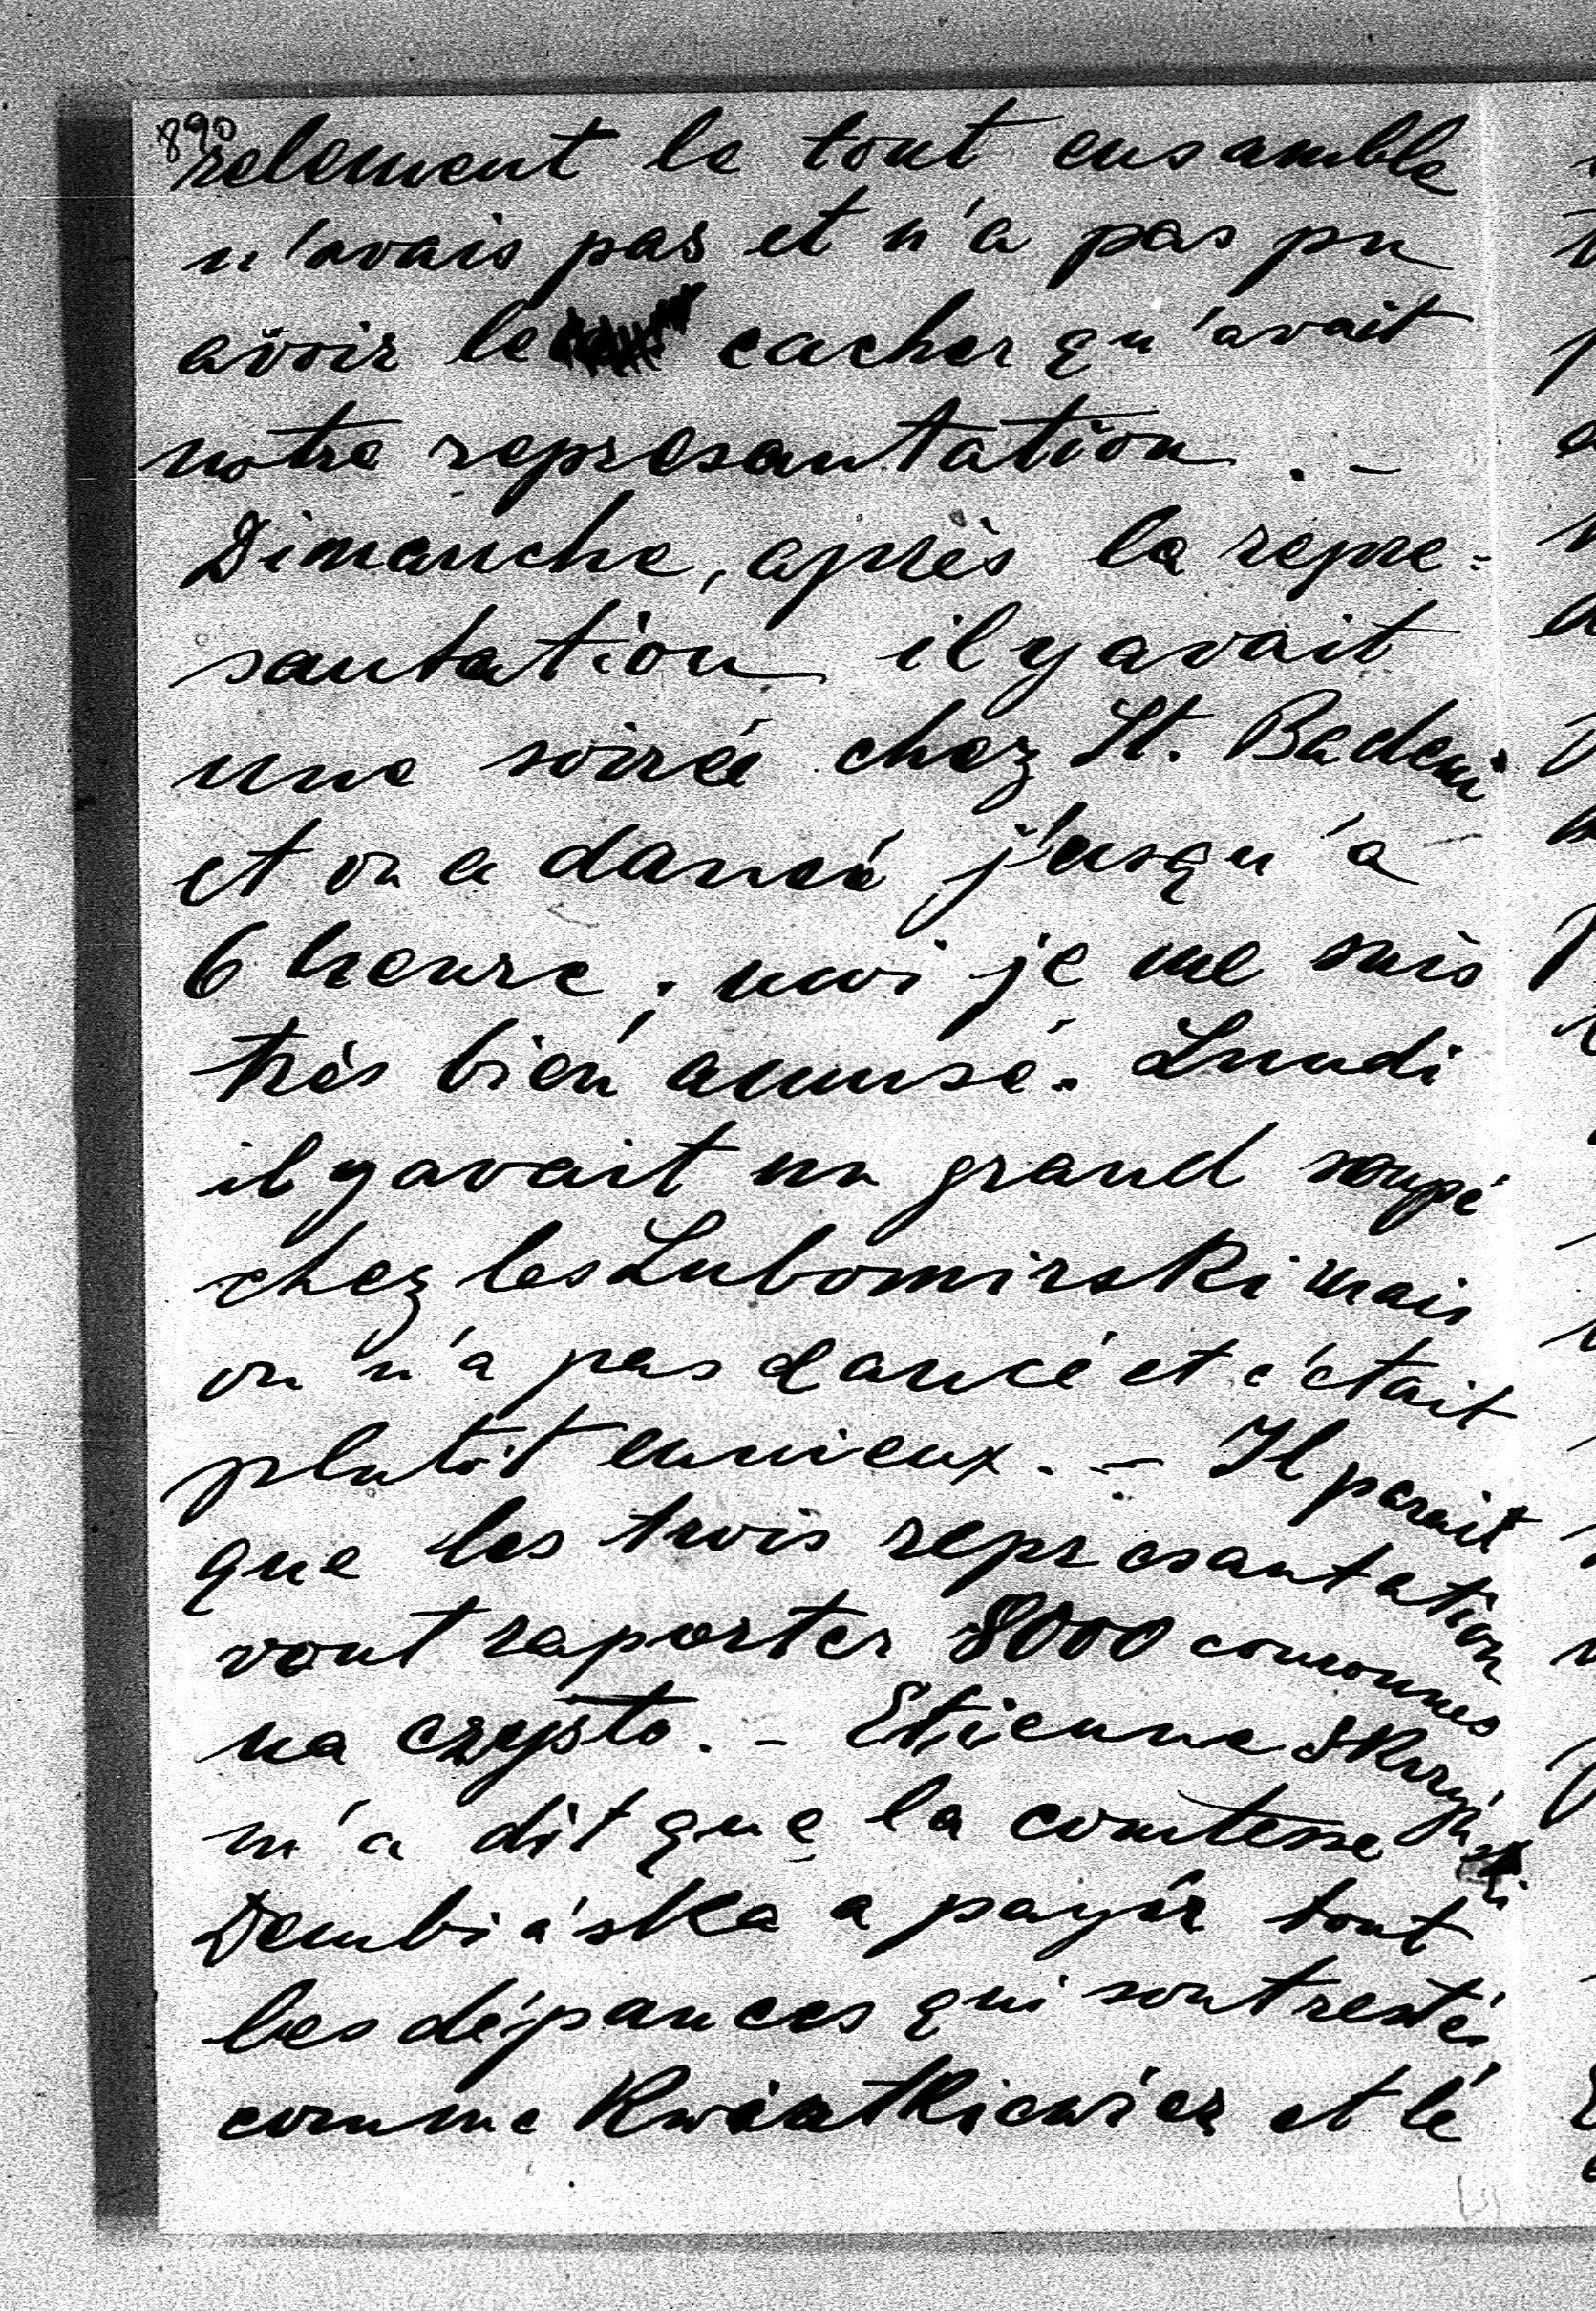 890
relement le tout ensamble
n'avais pas et n'a pas pu
avoir le cacher qu'avait
notre represantation. -
Dimanche, après la repre=
santation il y avait
une soirée chez St. Badeni
et on a dancé j'usqu'à
6 heure. moi je me suis
très bien amusé. Lundi
il y avait un grand soupé
chez les Lubomirski mais
on n'a pas dancé et c'était
plutôt ennieux. - Il parait
que les trois represantation
vont raporter 8000 couronnes
na czysto. - Etienne Skrzyński
m'a dit que la comtesse
Dembińska a payér tout
les dépances qui sont restés
comme Kwiatkiewicz et le